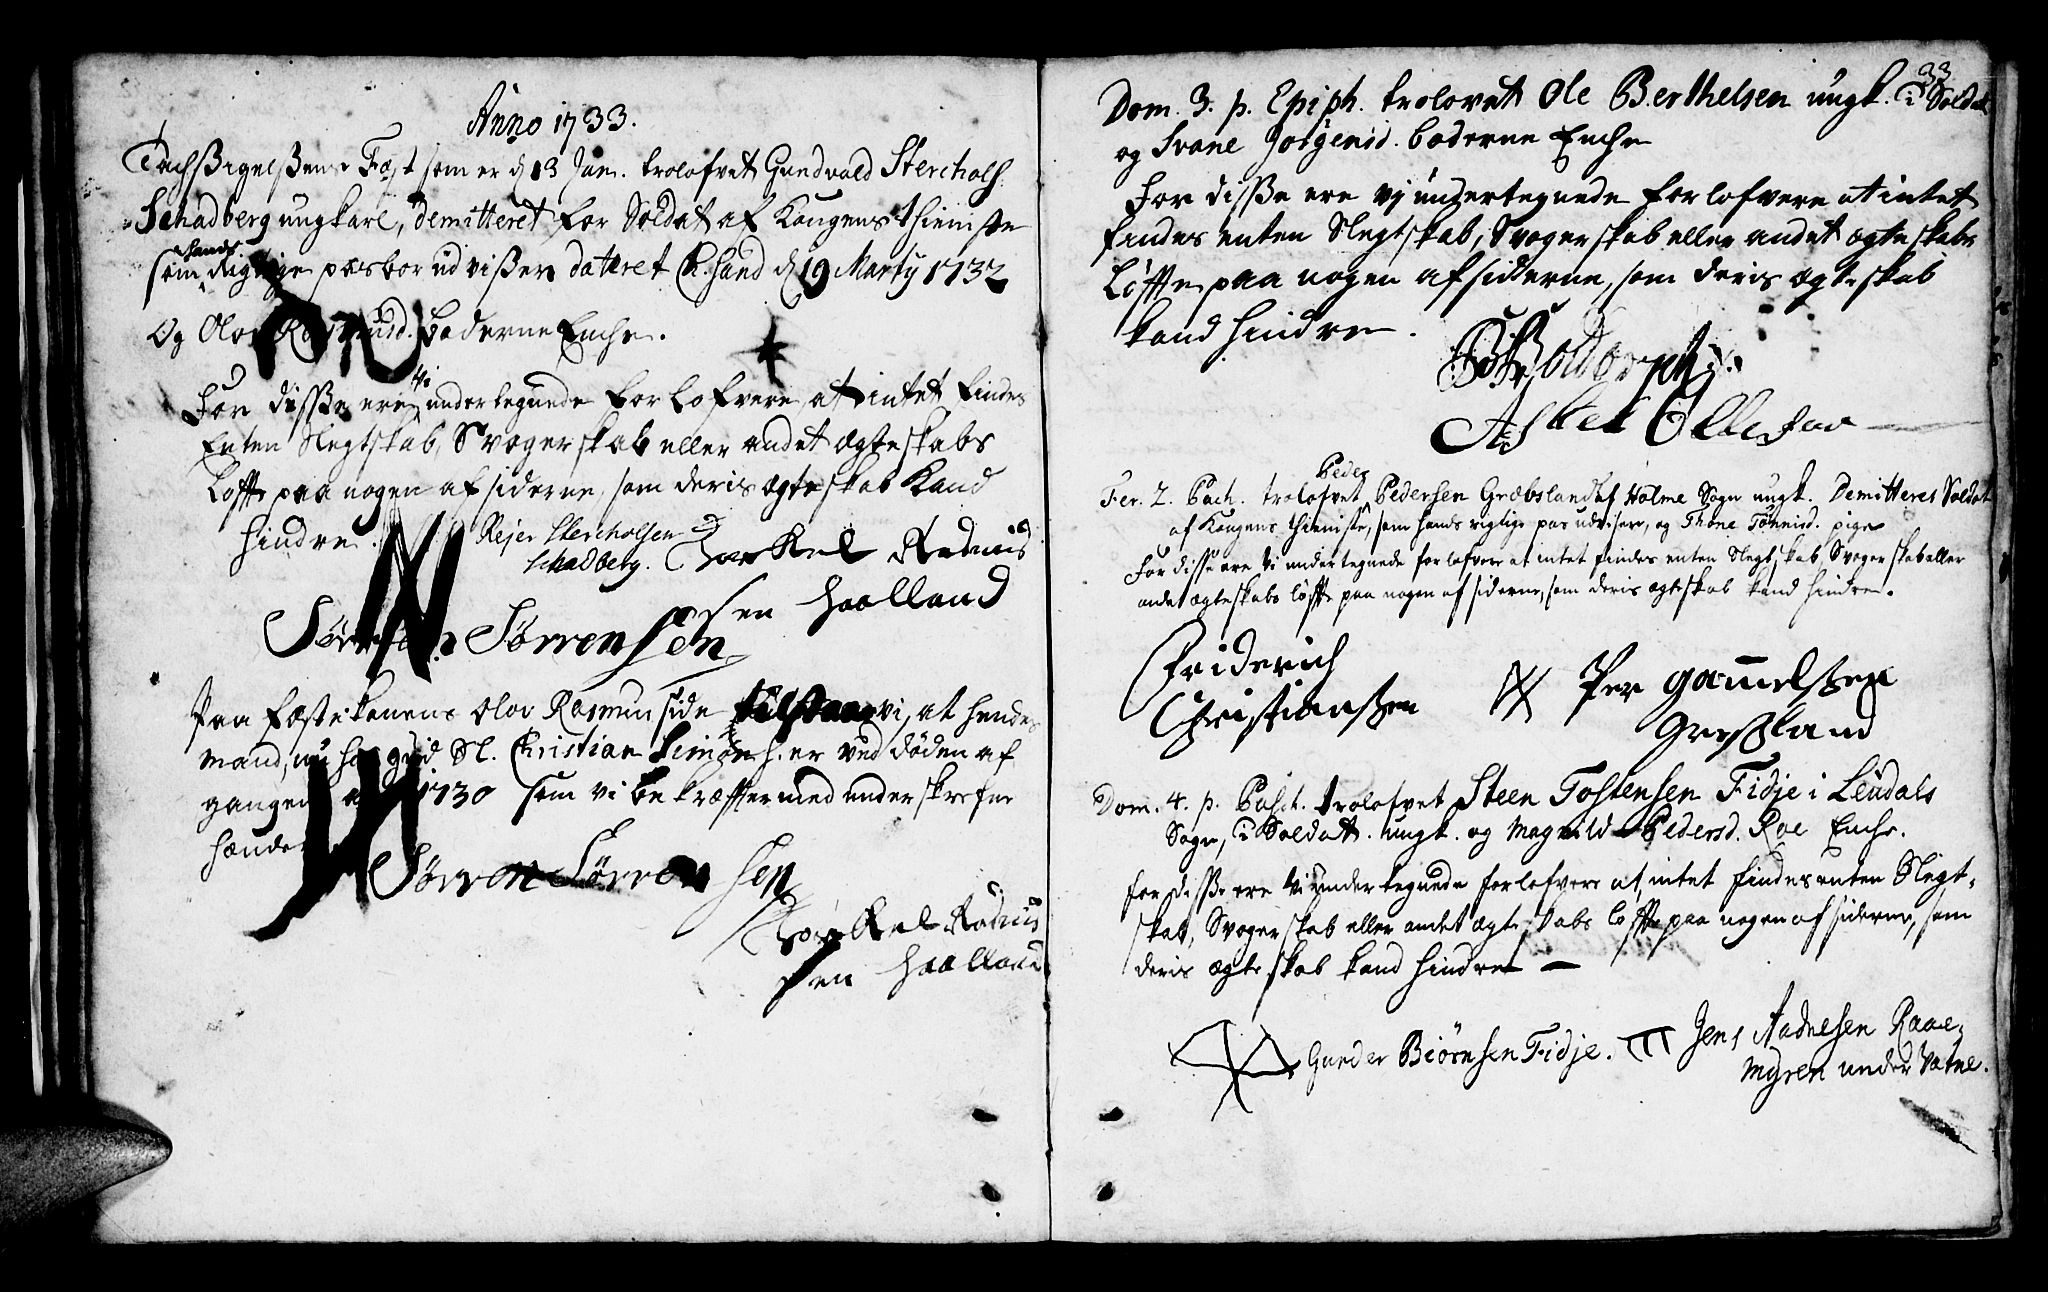 Anno 1733.
Tachsigelsens Fæst som er d 13 Jan. trolofvet Gundvald Sterchols.
Schadberg ungkarl, demitteret for Soldat af Kongens thieniste
som hands rigtige pasbor udviser dateret Ch.sand d 19 Martij 1732
Og Olov Rasmusd. baderne Enche.
For disse ere vi undertegnede forlofvere, at intet findes
Enten Slegtskab, Svogerskab eller andet ægteskabs
Løffte paa nogen af siderne, som deris ægteskab kand
hindre.
Rejer Stercholsen
Schadberg. Torkel Rasmus
sen Haalland
Sørren Sørrensen
Paa fæstekonens Olov Rasmusside tilstaar vi, at hendes
mand, nu hos gud Sl. Christian Simons. er ved døden af
gangen 1730 som vi bekræffter med underskrefne
hænder
Sørren Sørrensen
Torkel Rasmus
sen Haalland
33
Dom. 3. p. Epiph. trolovet Ole Berthelsen ungk. i Soldat
og Svane Jørgensd. baderne Enche
For disse ere vj undertegnede forlofvere at intet
findes enten Slegtskab, Svogerskab eller andet ægteskabs
Løffte paa nogen af siderne, som deris ægteskab
kand hindre.
Asbel Ollesøn
Fer. 2. Pasch. trolofvet Peder Pedersen Græbsland af Holme Sogn ungk. Demitteret Soldat
af Kongens thieniste, som hands rigtige pas udviser, og Thone Tønnisd. pige
For disse ere vi undertegnede forlofvere at intet findes enten Slegtskab Svogerskab eller
andet ægteskabs løffte paa nogen af siderne, som deris ægteskab kand hindre.
Friderich
Christianssen Per Gamelssen
Gresland
Dom. 4. p. Pasch. trolofvet Steen Tostensen Fidje i Leudals
Sogn, i Soldat. ungk. og Magnild Pedersd. Roe Enche.
for disse ere vi undertegnede forlofvere at intet findes enten Slegt-
skab, Svogerskab eller andet ægteskabs løffte paa nogen af siderne, som
deris ægteskab kand hindre
Gunder Biørnsen Fidje. Jens Aadnesen Raae-
myren under Vatne.